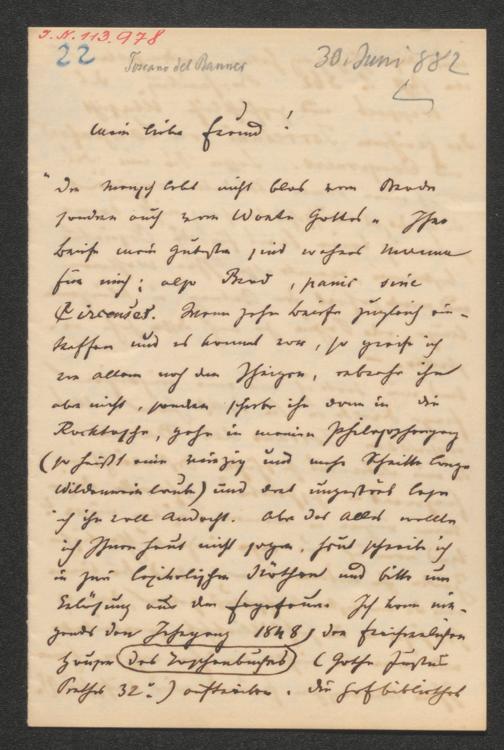 I.N. 113.978
22
Toscano del Banner
30. Juni 882
Mein lieber Freund!
"Der Mensch lebt nicht blos vom Brode
sondern auch vom Worte Gottes" Ihre
Briefe mein gütigster sind wahres Manna
für mich; also Brod, panis sine
Circenses. Wenn zehn Briefe zugleich ein-
treffen und es kommt vor, so greife ich
vor allem nach dem Ihrigen, erbreche ihn
aber nicht, sondern schiebe ihn dann in die
Rocktasche, gehe in meinen Philosophengang
(so heißt eine winzig und mehr Schritte lange
Wildeweinlaube) und dort ungestört lese
ich ihn voll Andacht. Aber das Alles wollte
ich Ihnen heut nicht sagen, heut schreibe ich
in rein literarischen Nöthen und bitte um
Erlösung aus dem Fegefeuer. Ich kann nir-
gends den Jahrgang 1848, der freiherrlichen
Häuser des Taschenbuches (Gotha Justus
Perthes 32°.) auftreiben. Die Hofbibliothek